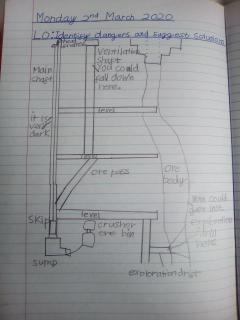 Monday 2nd March 2020
LO: Identify dangers and suggest solutions
Ventilation
shaft
You could
fall down
here.
Main
shaft
level
it is
very
dark
ore pass
ore
body
level
skip
crusher
ore bin
sump
You could
here
exploration drift